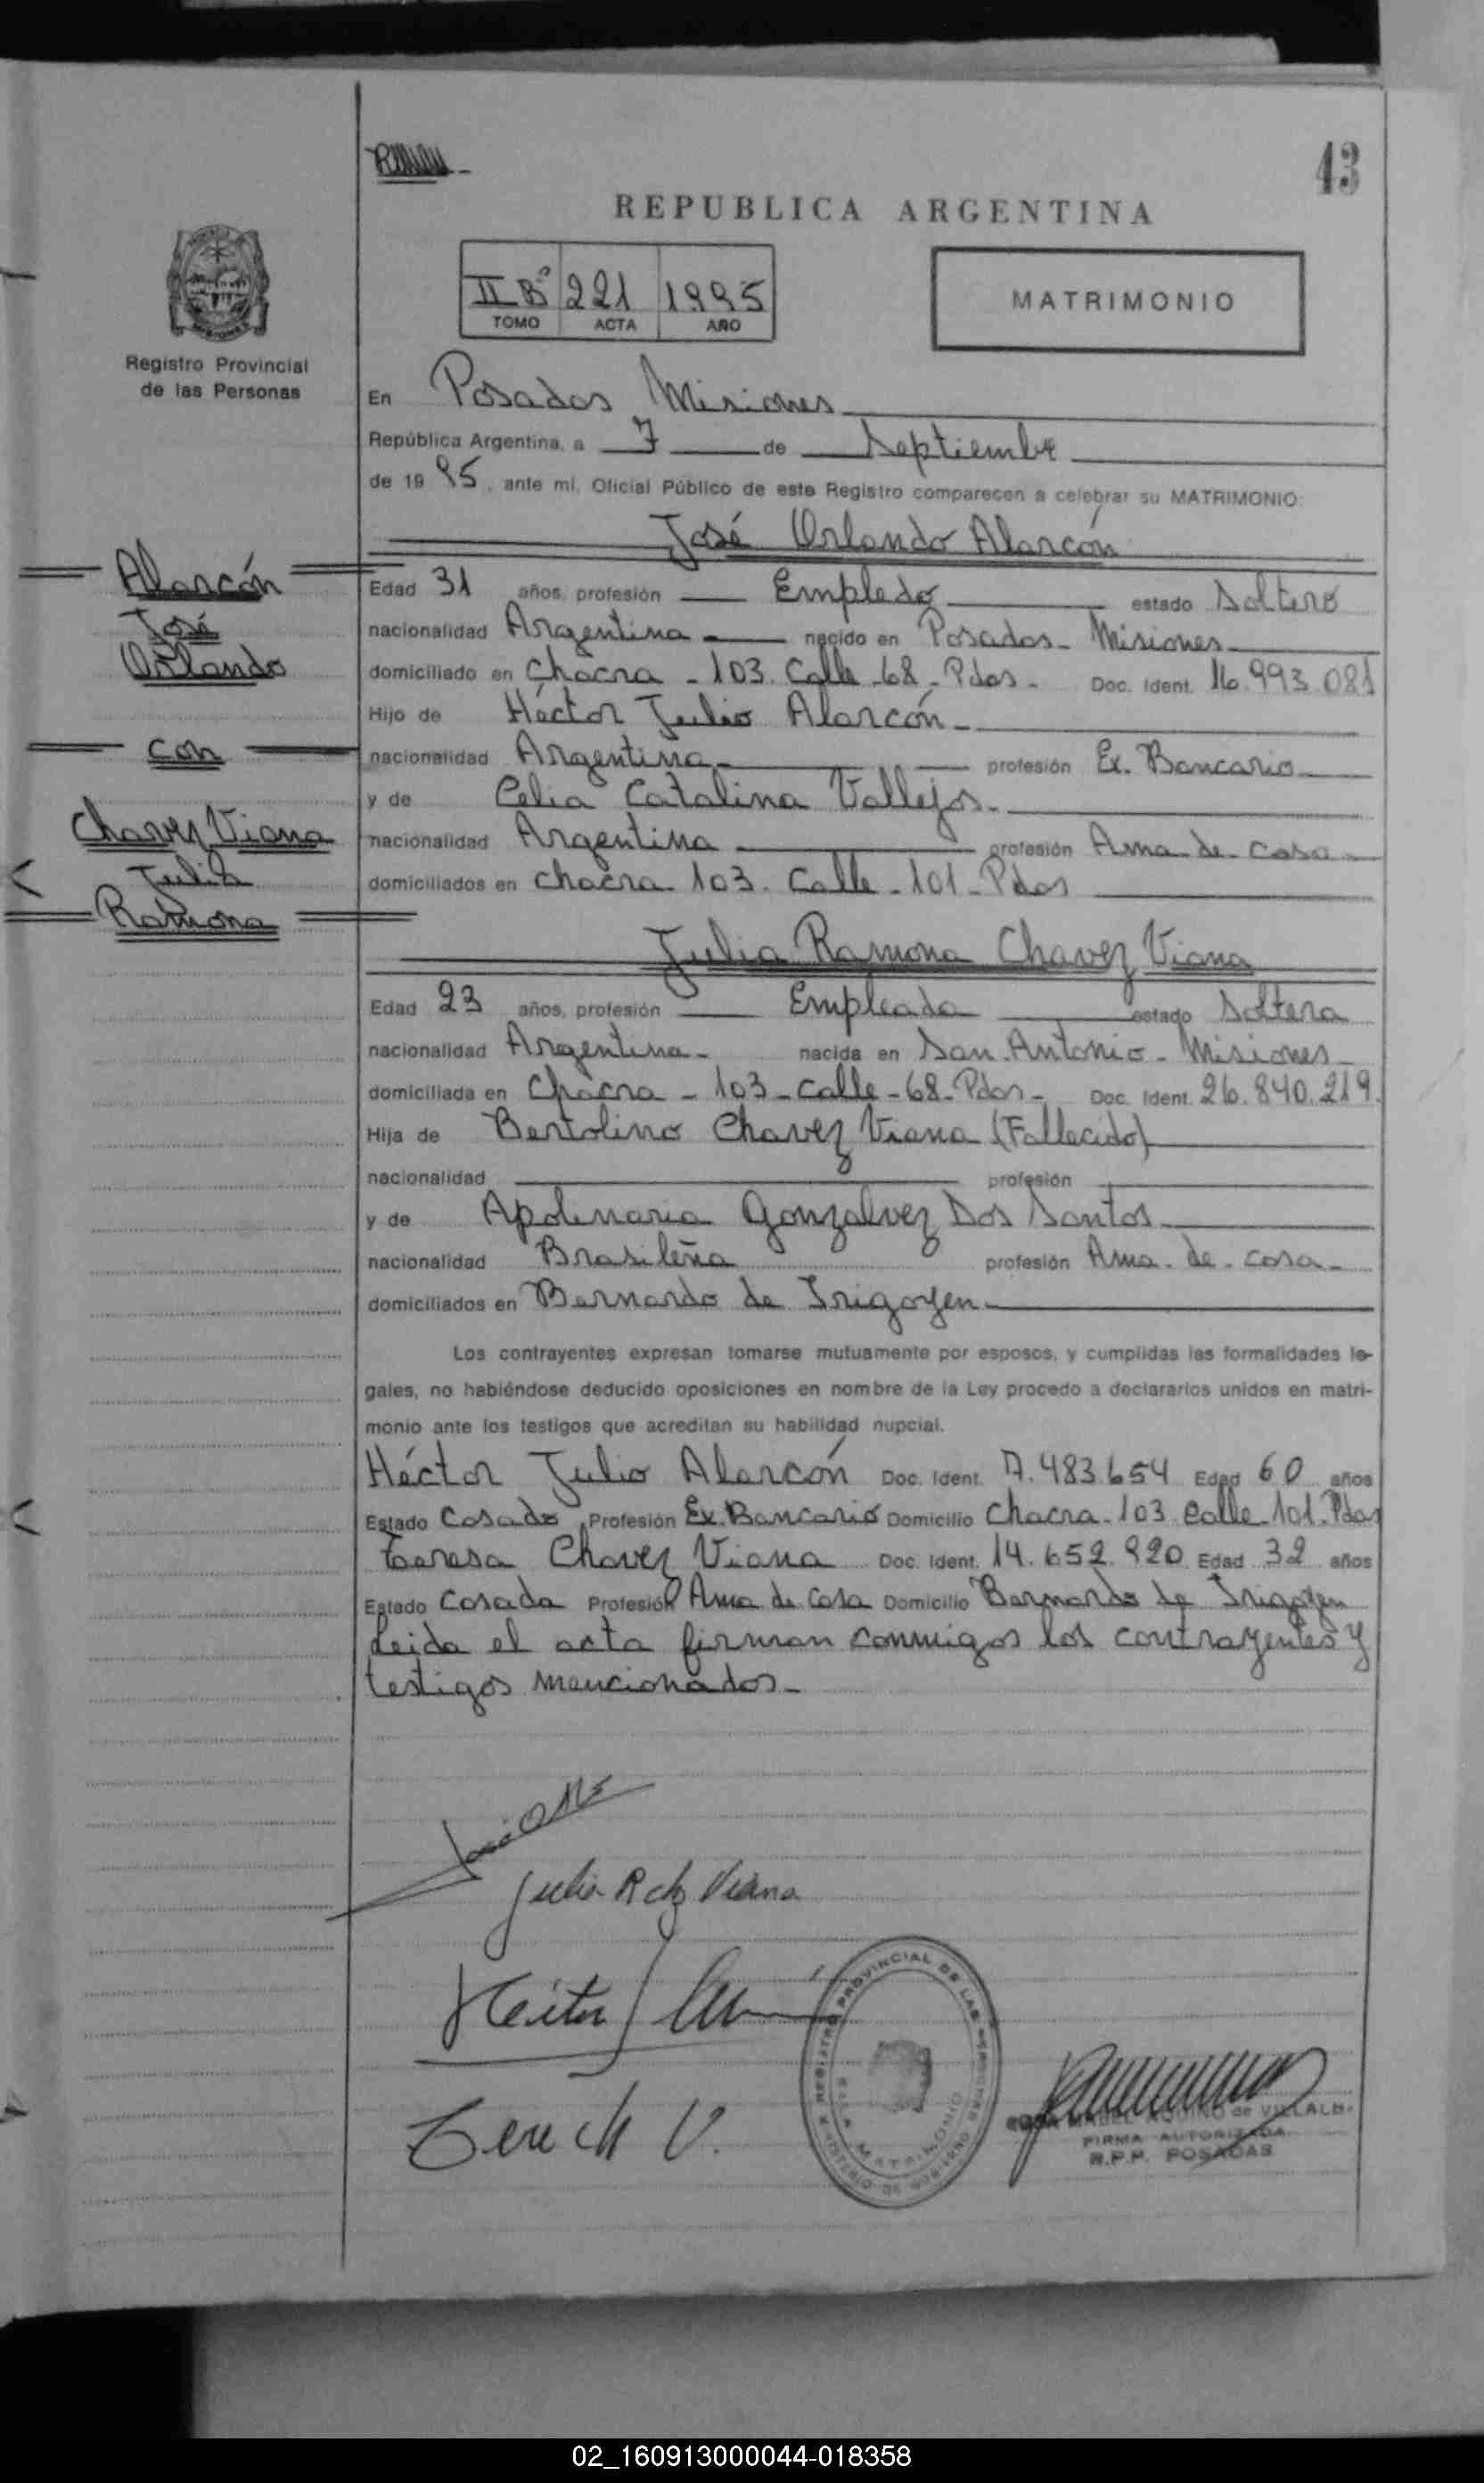 43
REPUBLICA ARGENTINA
II Bº 221 1995
TOMO ACTA AÑO
MATRIMONIO
Registro Provincial
de las Personas
En Posadas Misiones
República Argentina, a 7 de Septiembre
de 1995, ante mí, Oficial Público de este Registro comparecen a celebrar su MATRIMONIO:
José Orlando Alarcón
Alarcón
José
Orlando
con
Chavez Viana
Julia
Ramona
Edad 31 años, profesión Empledo estado Soltero
nacionalidad Argentina nacido en Posadas - Misiones
domiciliado en Chacra - 103. Calle - 68 - Pdas - Doc. Ident. 16.993.081
Hijo de Héctor Julio Alarcón -
nacionalidad Argentina - profesión Ex. Bancario
y de Celia Catalina Vallejos -
nacionalidad Argentina profesión Ama - de - casa -
domiciliados en Chacra - 103. Calle - 101 - Pdas
Julia Ramona Chavez Viana
Edad 23 años, profesión Empleada estado Soltera
nacionalidad Argentina - nacida en San. Antonio - Misiones
domiciliada en Chacra - 103 - calle - 68 - Pdas - Doc. Ident. 26.840.219.
Hija de Bertolino Chavez Viana (Fallecido)
nacionalidad profesión
y de Apolinaria Gonzalvez Dos Santos
nacionalidad Brasileña profesión Ama - de - casa -
domiciliados en Bernardo de Irigoyen -
Los contrayentes expresan tomarse mutuamente por esposos, y cumplidas las formalidades le-
gales, no habiéndose deducido oposiciones en nombre de la Ley procedo a declararlos unidos en matri-
monio ante los testigos que acreditan su habilidad nupcial.
Héctor Julio Alarcón Doc. Ident. 7.483.654 Edad 60 años
Estado Casado Profesión Ex. Bancario Domicilio Chacra - 103. Calle - 101. Pdas
Teresa Chavez Viana Doc. Ident. 14.652.920 Edad 32 años
Estado Casada Profesión Ama de Casa Domicilio Bernardo de Irigoyen
Leida el acta firman conmigos los contrayentes y
testigos mencionados -
Julia R Chz Viana
Héctor J
Tere Ch V.
REGISTRO PROVINCIAL DE LAS PERSONAS
MINISTERIO DE GOBIERNO
SALA MATRIMONIO
ROSA MABEL AQUINO de VILLALB.
FIRMA AUTORIZADA
R.P.P. POSADAS
02_160913000044-018358